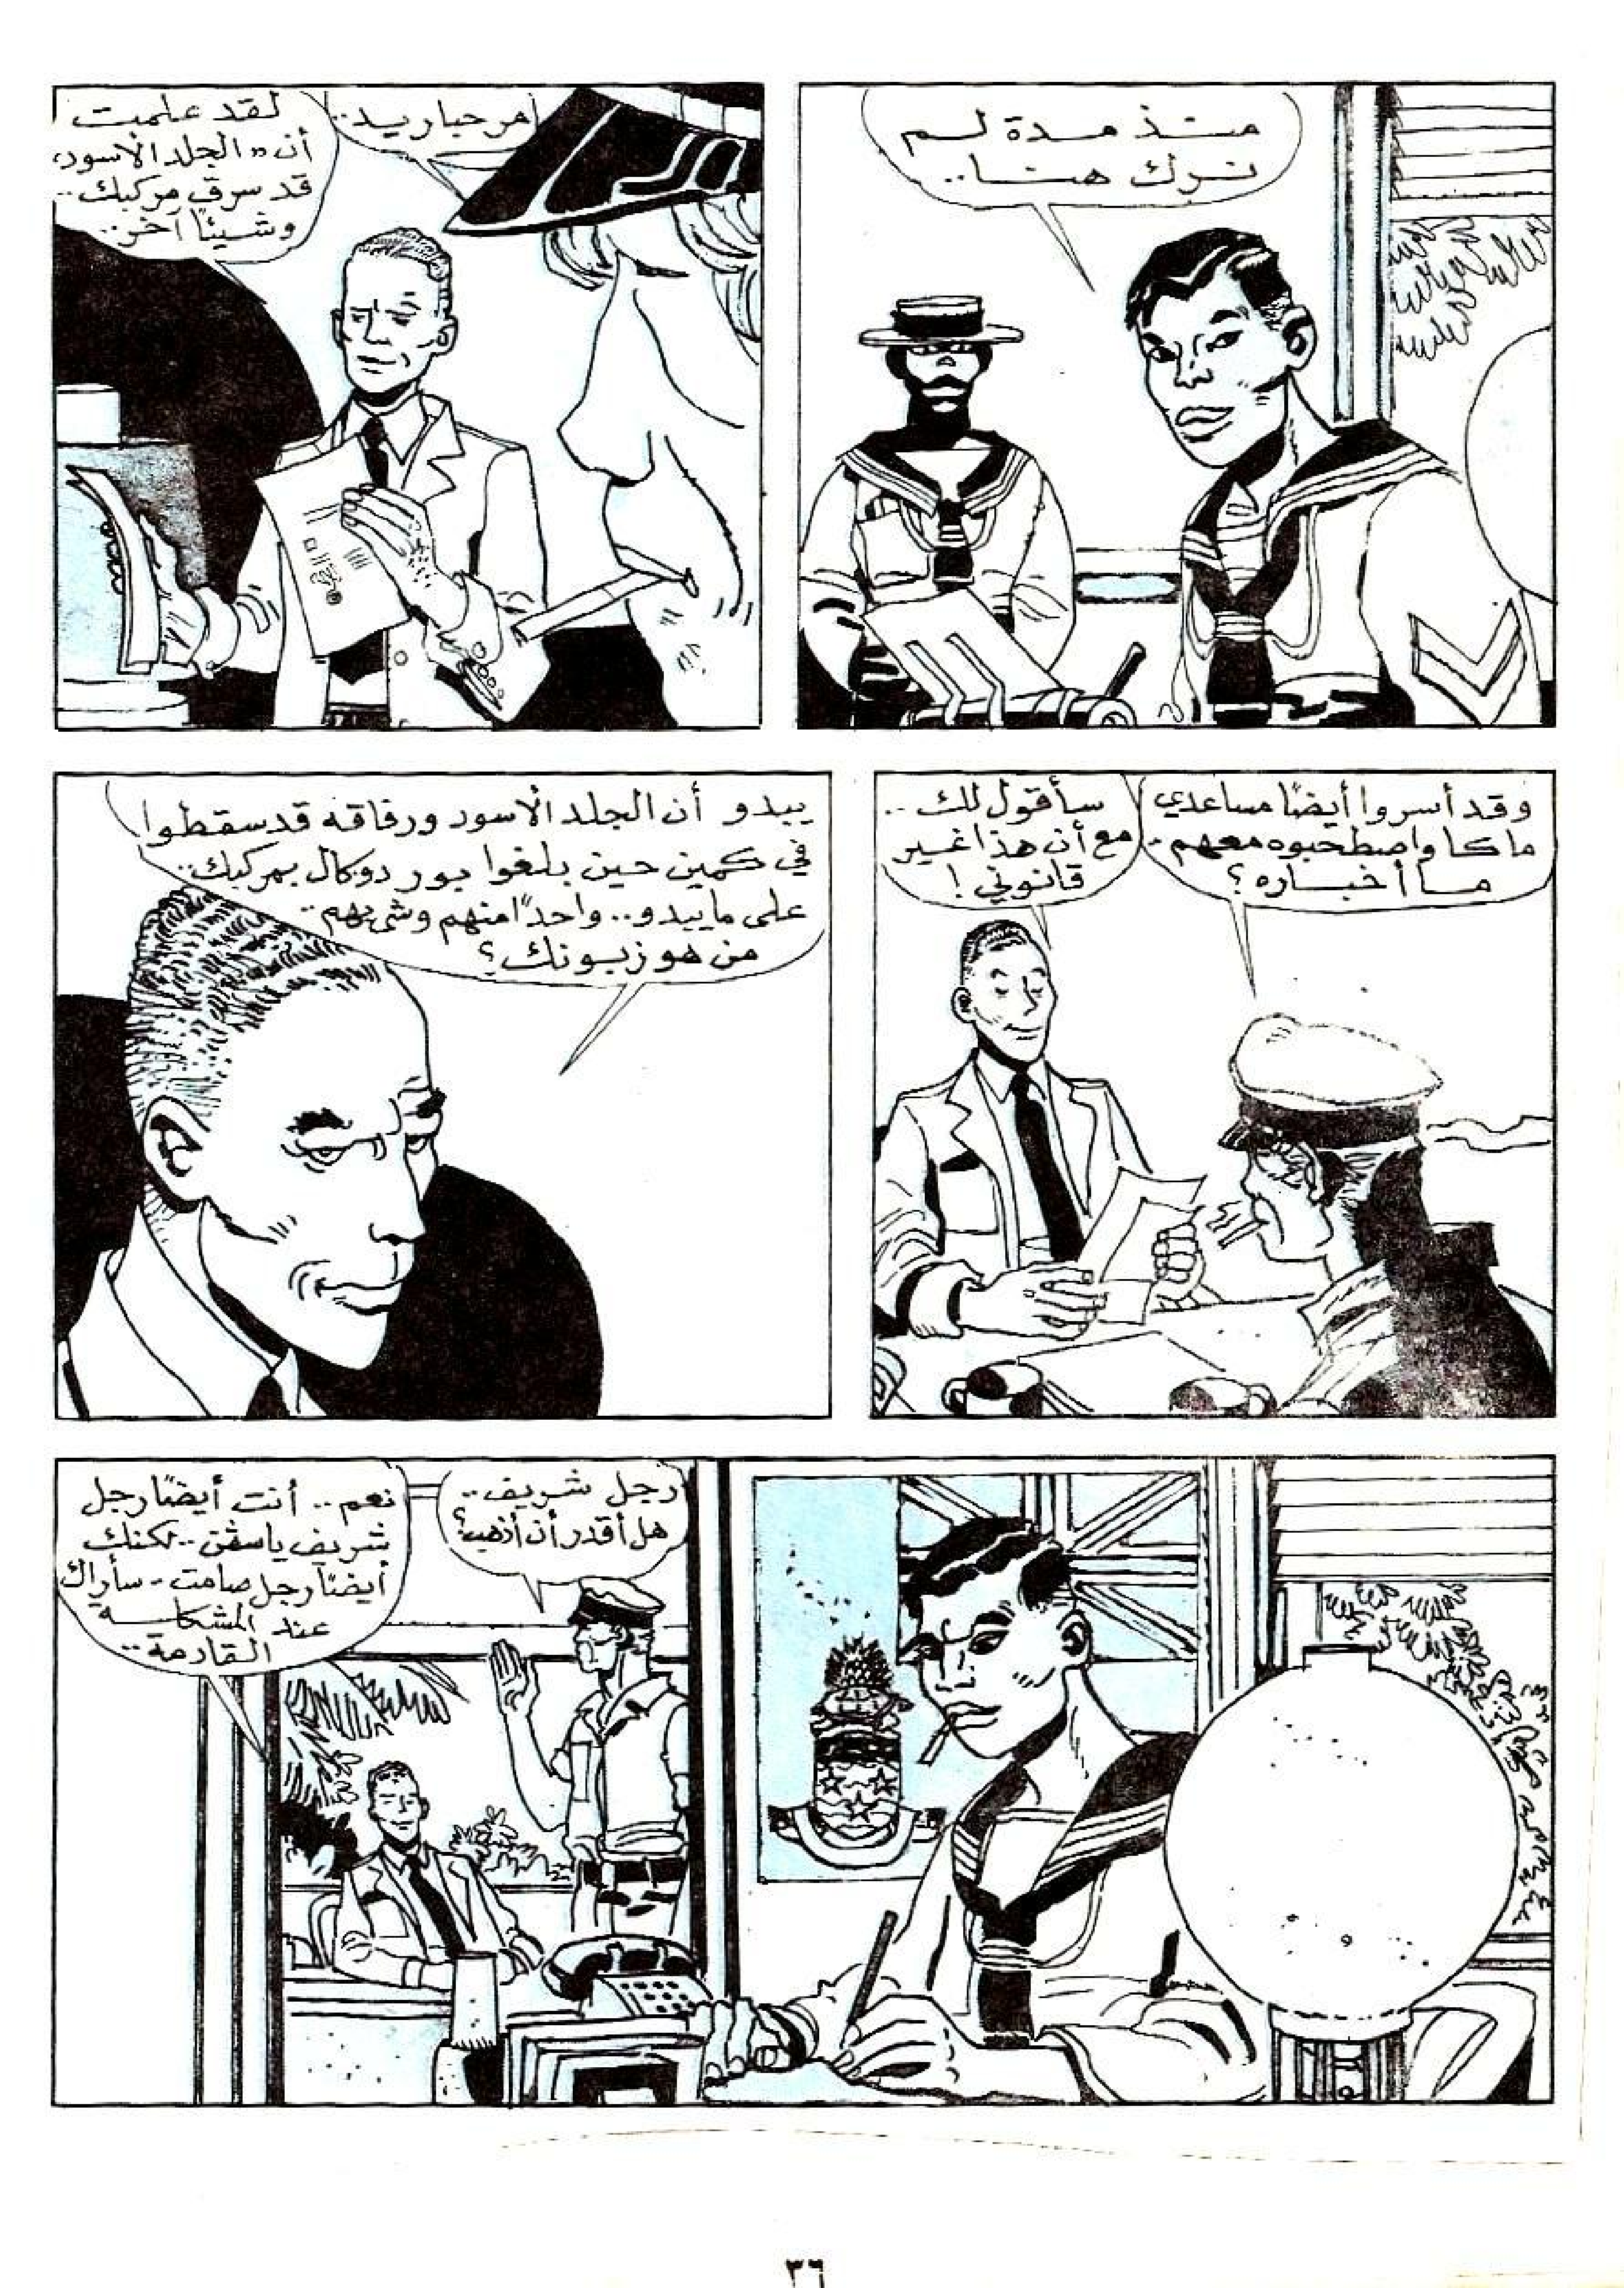 منذ مدة لم
نرك هنا..
مرحبا ريد..
لقد علمت
أن «الجلد الأسود»
قد سرق مركبك..
وشيئًا آخر..
وقد أسروا أيضًا مساعدي
ماكا واصطحبوه معهم..
ما أخباره؟
سأقول لك..
مع أن هذا غير
قانوني!
يبدو أن الجلد الأسود ورفاقه قد سقطوا
في كمين حين بلغوا بور دوكال بمركبك..
على ما يبدو.. واحدًا منهم وشى بهم..
من هو زبونك؟
رجل شريف..
هل أقدر أن أذهب؟
نعم.. أنت أيضًا رجل
شريف يا سڤن.. لكنك
أيضًا رجل صامت - سأراك
عند المشكلة
القادمة..
٣٦